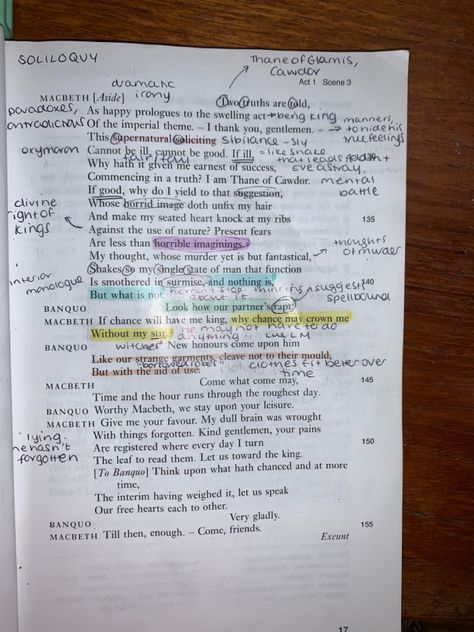 SOLILOQUY
Thane of Glamis,
Cawdor
Act 1 Scene 3
dramatic
irony
MACBETH [Aside] Two truths are told,
paradoxes,
contradictions
As happy prologues to the swelling act → being king
Of the imperial theme. – I thank you, gentlemen. –
manners,
to hide his
true feelings
This supernatural soliciting sibilance - sly
oxymoron
Cannot be ill, cannot be good. If ill, = like snake
fair/foul
that leads
eve astray
Why hath it given me earnest of success,
Commencing in a truth? I am Thane of Cawdor. mental
battle
If good, why do I yield to that suggestion,
Whose horrid image doth unfix my hair
divine
right of
kings
And make my seated heart knock at my ribs 135
Against the use of nature? Present fears
Are less than horrible imaginings.
My thought, whose murder yet is but fantastical,
thoughts
of murder
Shakes so my single state of man that function
interior
monologue
Is smothered in surmise, and nothing is 140
But what is not. he can't stop thinking
about it
suggests
spellbound
BANQUO Look how our partner's rapt.
MACBETH If chance will have me king, why chance may crown me
Without my stir. he may not have to do
anything
BANQUO New honours come upon him
witches
Like our strange garments, cleave not to their mould,
"borrowed robes"
clothes fit better over
time
But with the aid of use.
MACBETH Come what come may, 145
Time and the hour runs through the roughest day.
BANQUO Worthy Macbeth, we stay upon your leisure.
MACBETH Give me your favour. My dull brain was wrought
lying,
he hasn't
forgotten
With things forgotten. Kind gentlemen, your pains
Are registered where every day I turn 150
The leaf to read them. Let us toward the king.
[To Banquo] Think upon what hath chanced and at more
time,
The interim having weighed it, let us speak
Our free hearts each to other.
BANQUO Very gladly. 155
MACBETH Till then, enough. – Come, friends.
Exeunt
17